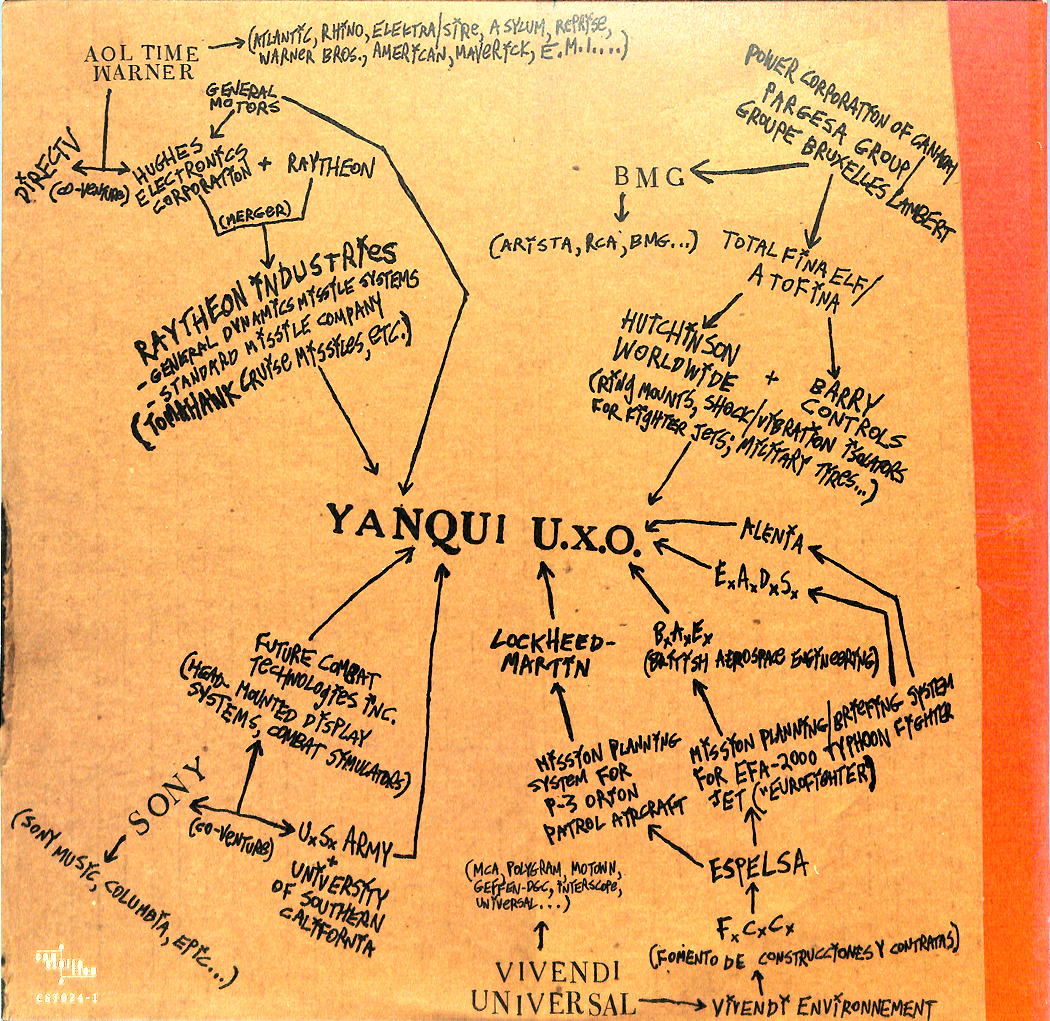 AOL TIME
WARNER
(ATLANTIC, RHINO, ELEKTRA/SIRE, ASYLUM, REPRISE,
WARNER BROS., AMERICAN, MAVERICK, E.M.I....)
GENERAL
MOTORS
DIRECTV
(CO-VENTURE)
HUGHES
ELECTRONICS
CORPORATION
+
RAYTHEON
(MERGER)
RAYTHEON INDUSTRIES
-GENERAL DYNAMICS MISSILE SYSTEMS
- STANDARD MISSILE COMPANY
(TOMAHAWK CRUISE MISSILES, ETC.)
POWER CORPORATION OF CANADA/
PARGESA GROUP/
GROUPE BRUXELLES LAMBERT
BMG
(ARISTA, RCA, BMG...)
TOTAL FINA ELF/
ATOFINA
HUTCHINSON
WORLDWIDE
+
BARRY
CONTROLS
(RING MOUNTS, SHOCK/VIBRATION ISOLATORS
FOR FIGHTER JETS; MILITARY TIRES...)
YANQUI U.X.O.
ALENIA
E×A×D×S×
B×A×E×
(BRITISH AEROSPACE ENGINEERING)
LOCKHEED-
MARTIN
FUTURE COMBAT
TECHNOLOGIES INC.
(HEAD-MOUNTED DISPLAY
SYSTEMS, COMBAT SIMULATORS)
MISSION PLANNING
SYSTEM FOR
P-3 ORION
PATROL AIRCRAFT
MISSION PLANNING/BRIEFING SYSTEM
FOR EFA-2000 TYPHOON FIGHTER
JET ("EUROFIGHTER)
SONY
(CO-VENTURE)
U×S× ARMY
+
UNIVERSITY
OF SOUTHERN
CALIFORNIA
(SONY MUSIC, COLUMBIA, EPIC...)
ESPELSA
(MCA, POLYGRAM, MOTOWN,
GEFFEN-DGC, INTERSCOPE,
UNIVERSAL...)
F×C×C×
(FOMENTO DE CONSTRUCCIONES Y CONTRATAS)
VIVENDI
UNIVERSAL
VIVENDI ENVIRONNEMENT